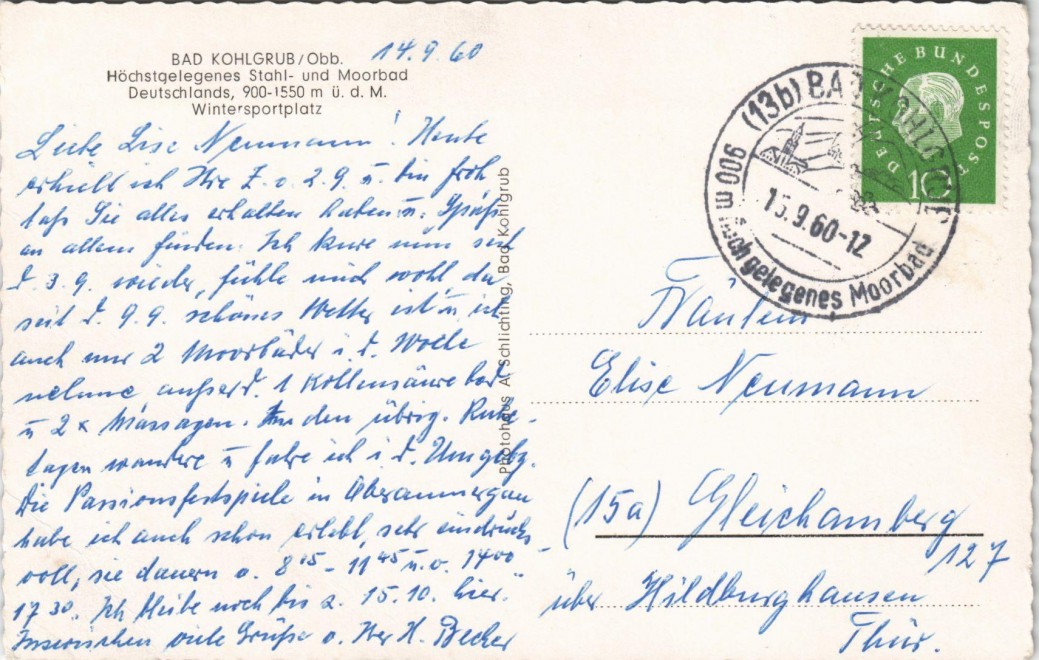 BAD KOHLGRUB/Obb.
Höchstgelegenes Stahl- und Moorbad
Deutschlands, 900-1550 m ü. d. M.
Wintersportplatz
14.9.60
Liebe Lise Neumann! Heute
erhielt ich Ihre Z. v. 2.9. u. bin froh
daß Sie alles erhalten haben u. Spaß
an allem finden. Ich kure nun seit
d. 3.9. wieder, fühle mich wohl, da
seit d. 9.9. schönes Wetter ist u. ich
auch nur 2 Moorbäder i. d. Woche
nehme außerd. 1 Kohlensäurebad
u 2 x Massagen. An den übrig. Ruhe-
tagen wandere u fahre ich i. d. Umgebg.
Die Passionsfestspiele in Oberammergau
habe ich auch schon erlebt, sehr eindrucks-
voll, sie dauern v. 8 15 - 11 45 u. v. 14 00 -
17 30. Ich bleibe noch bis z. 15.10. hier.
Inzwischen viele Grüße v. Ihrer H. Becher
Photohaus A. Schlichting, Bad Kohlgrub
DEUTSCHE BUNDESPOST
10
(13b) BAD KOHLGRUB
900 m
15.9.60-12
hoch gelegenes Moorbad
Fräulein
Elise Neumann
(15a) Gleichamberg
127
über Hildburghausen
Thür.